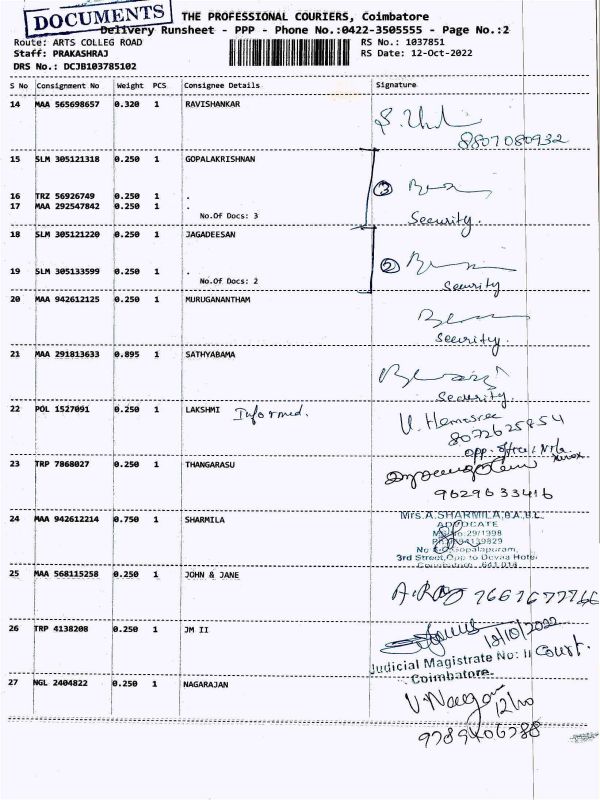 DOCUMENTS
THE PROFESSIONAL COURIERS, Coimbatore
Delivery Runsheet - PPP - Phone No.:0422-3505555 - Page No.:2
Route: ARTS COLLEG ROAD RS No.: 1037851
Staff: PRAKASHRAJ RS Date: 12-Oct-2022
DRS No.: DCJB103785102
S No Consignment No Weight PCS Consignee Details Signature
14 MAA 565698657 0.320 1 RAVISHANKAR
8807080932
15 SLM 305121318 0.250 1 GOPALAKRISHNAN
16 TRZ 56926749 0.250 1 . ③
17 MAA 292547842 0.250 1 .
No.Of Docs: 3 Security.
18 SLM 305121220 0.250 1 JAGADEESAN
19 SLM 305133599 0.250 1 . ②
No.Of Docs: 2 Security
20 MAA 942612125 0.250 1 MURUGANANTHAM
Security.
21 MAA 291813633 0.895 1 SATHYABAMA
Security.
22 POL 1527091 0.250 1 LAKSHMI Informed. U. Hemasree
8072625854
23 TRP 7868027 0.250 1 THANGARASU
9629633416
24 MAA 942612214 0.750 1 SHARMILA Mrs.A.SHARMILA,B.A,B.L.
ADVOCATE
3rd Street,Opp to Devas Hotel
Coimbatore - 641 018
25 MAA 568115258 0.250 1 JOHN & JANE
26 TRP 4138208 0.250 1 JM II 12/10/2022
Judicial Magistrate No: II Court.
Coimbatore.
27 NGL 2404822 0.250 1 NAGARAJAN
9789406788